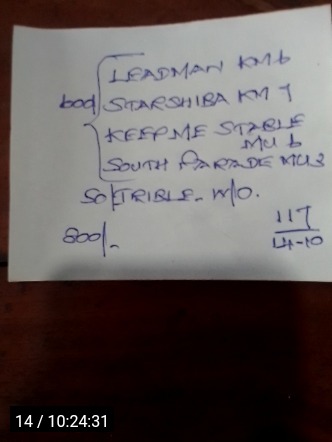 LEADMAN KM 6
600/ STARSHIBA KM 7
KEEP ME STABLE
MU 6
SOUTH PARADE MU 3
50/ TRIBLE - W/O.
117
800/-
14-10
14 / 10:24:31